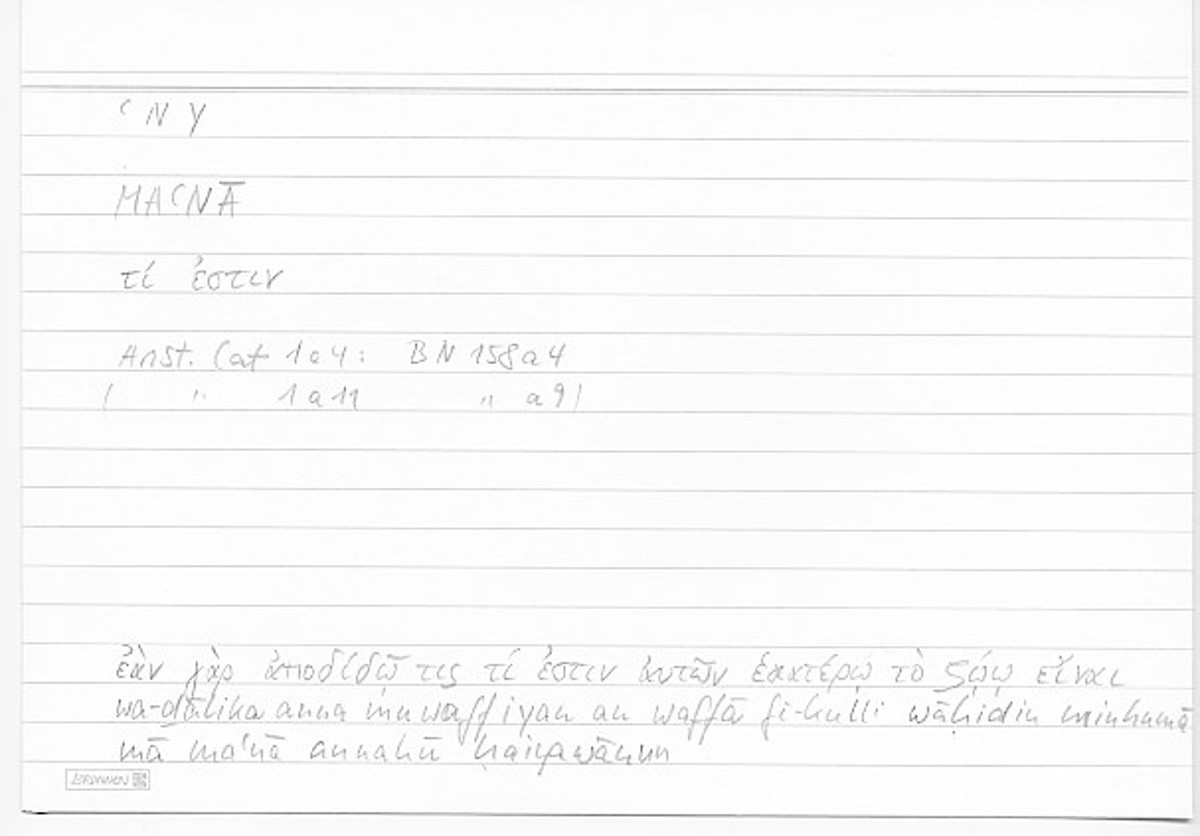 ʿNY
MAʿNĀ
τί ἐστιν
Arist. Cat 1a4: BN 158a4
( " 1a11 " a9)
ἐὰν γὰρ ἀποδιδῷ τις τί ἐστιν αὐτῶν ἑκατέρῳ τὸ ζῴῳ εἶναι
wa-ḏālika anna muwaffiyan an waffā fī-kulli wāḥidin minhumā
mā maʿnā annahū ḥaiyawānun
BRUNNEN